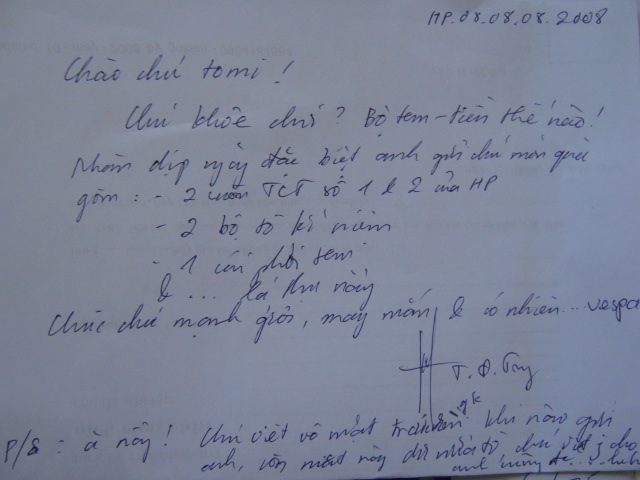 HP.08.08.08.2008
Chào chú tomi!
Chú khỏe chứ? Bộ tem-tiền thế nào!
Nhân dịp ngày đặc biệt anh gửi chú món quà
gồm: - 2 cuốn TCT số 1 & 2 của HP
- 2 bộ tô kỉ niệm
- 1 cái phôi tem
& ... lá thư này
Chúc chú mạnh giỏi, may mắn & có nhiên... vespa
T.Đ.
P/S: à này! Chú viết vô mặt khi nào gửi
anh, còn mặt này chú viết cho
anh